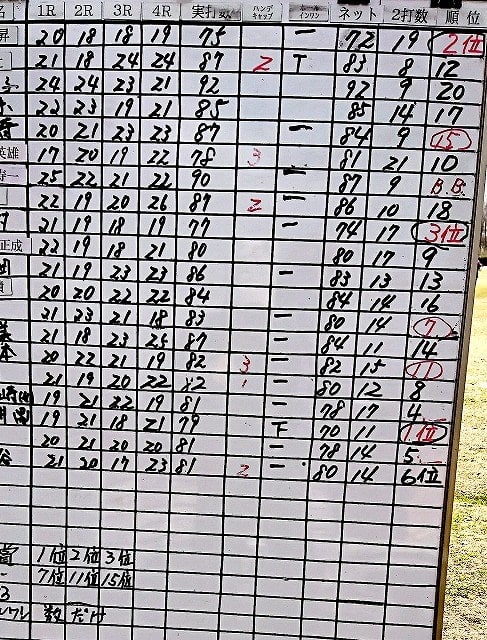 名 1R 2R 3R 4R 実打数 ハンデキャップ ホールインワン ネット 2打数 順位
昇 20 18 18 19 75 一 72 19 2位
21 18 24 24 87 2 T 83 8 12
24 24 23 21 92 92 9 20
22 23 19 21 85 85 14 17
20 21 23 23 87 一 84 9 15
英雄 17 20 19 22 78 3 81 21 10
寿一 25 22 21 22 90 一 87 9 B.B.
22 19 20 26 87 2 一 86 10 18
21 19 18 19 77 一 74 17 3位
正成 22 19 18 21 80 80 17 9
21 19 23 23 86 一 83 13 13
20 20 22 22 84 84 14 16
21 23 21 18 83 一 80 14 7
21 18 23 25 87 一 84 11 14
本 20 22 21 19 82 3 一 82 15 11
21 19 20 22 82 1 一 80 12 8
19 21 22 19 81 一 78 17 4
19 21 18 21 79 下 70 11 1位
20 21 20 20 81 一 78 14 5
21 20 17 23 81 2 一 80 14 6位
賞 1位 2位 3位
7位 11位 15位
3
数だけ